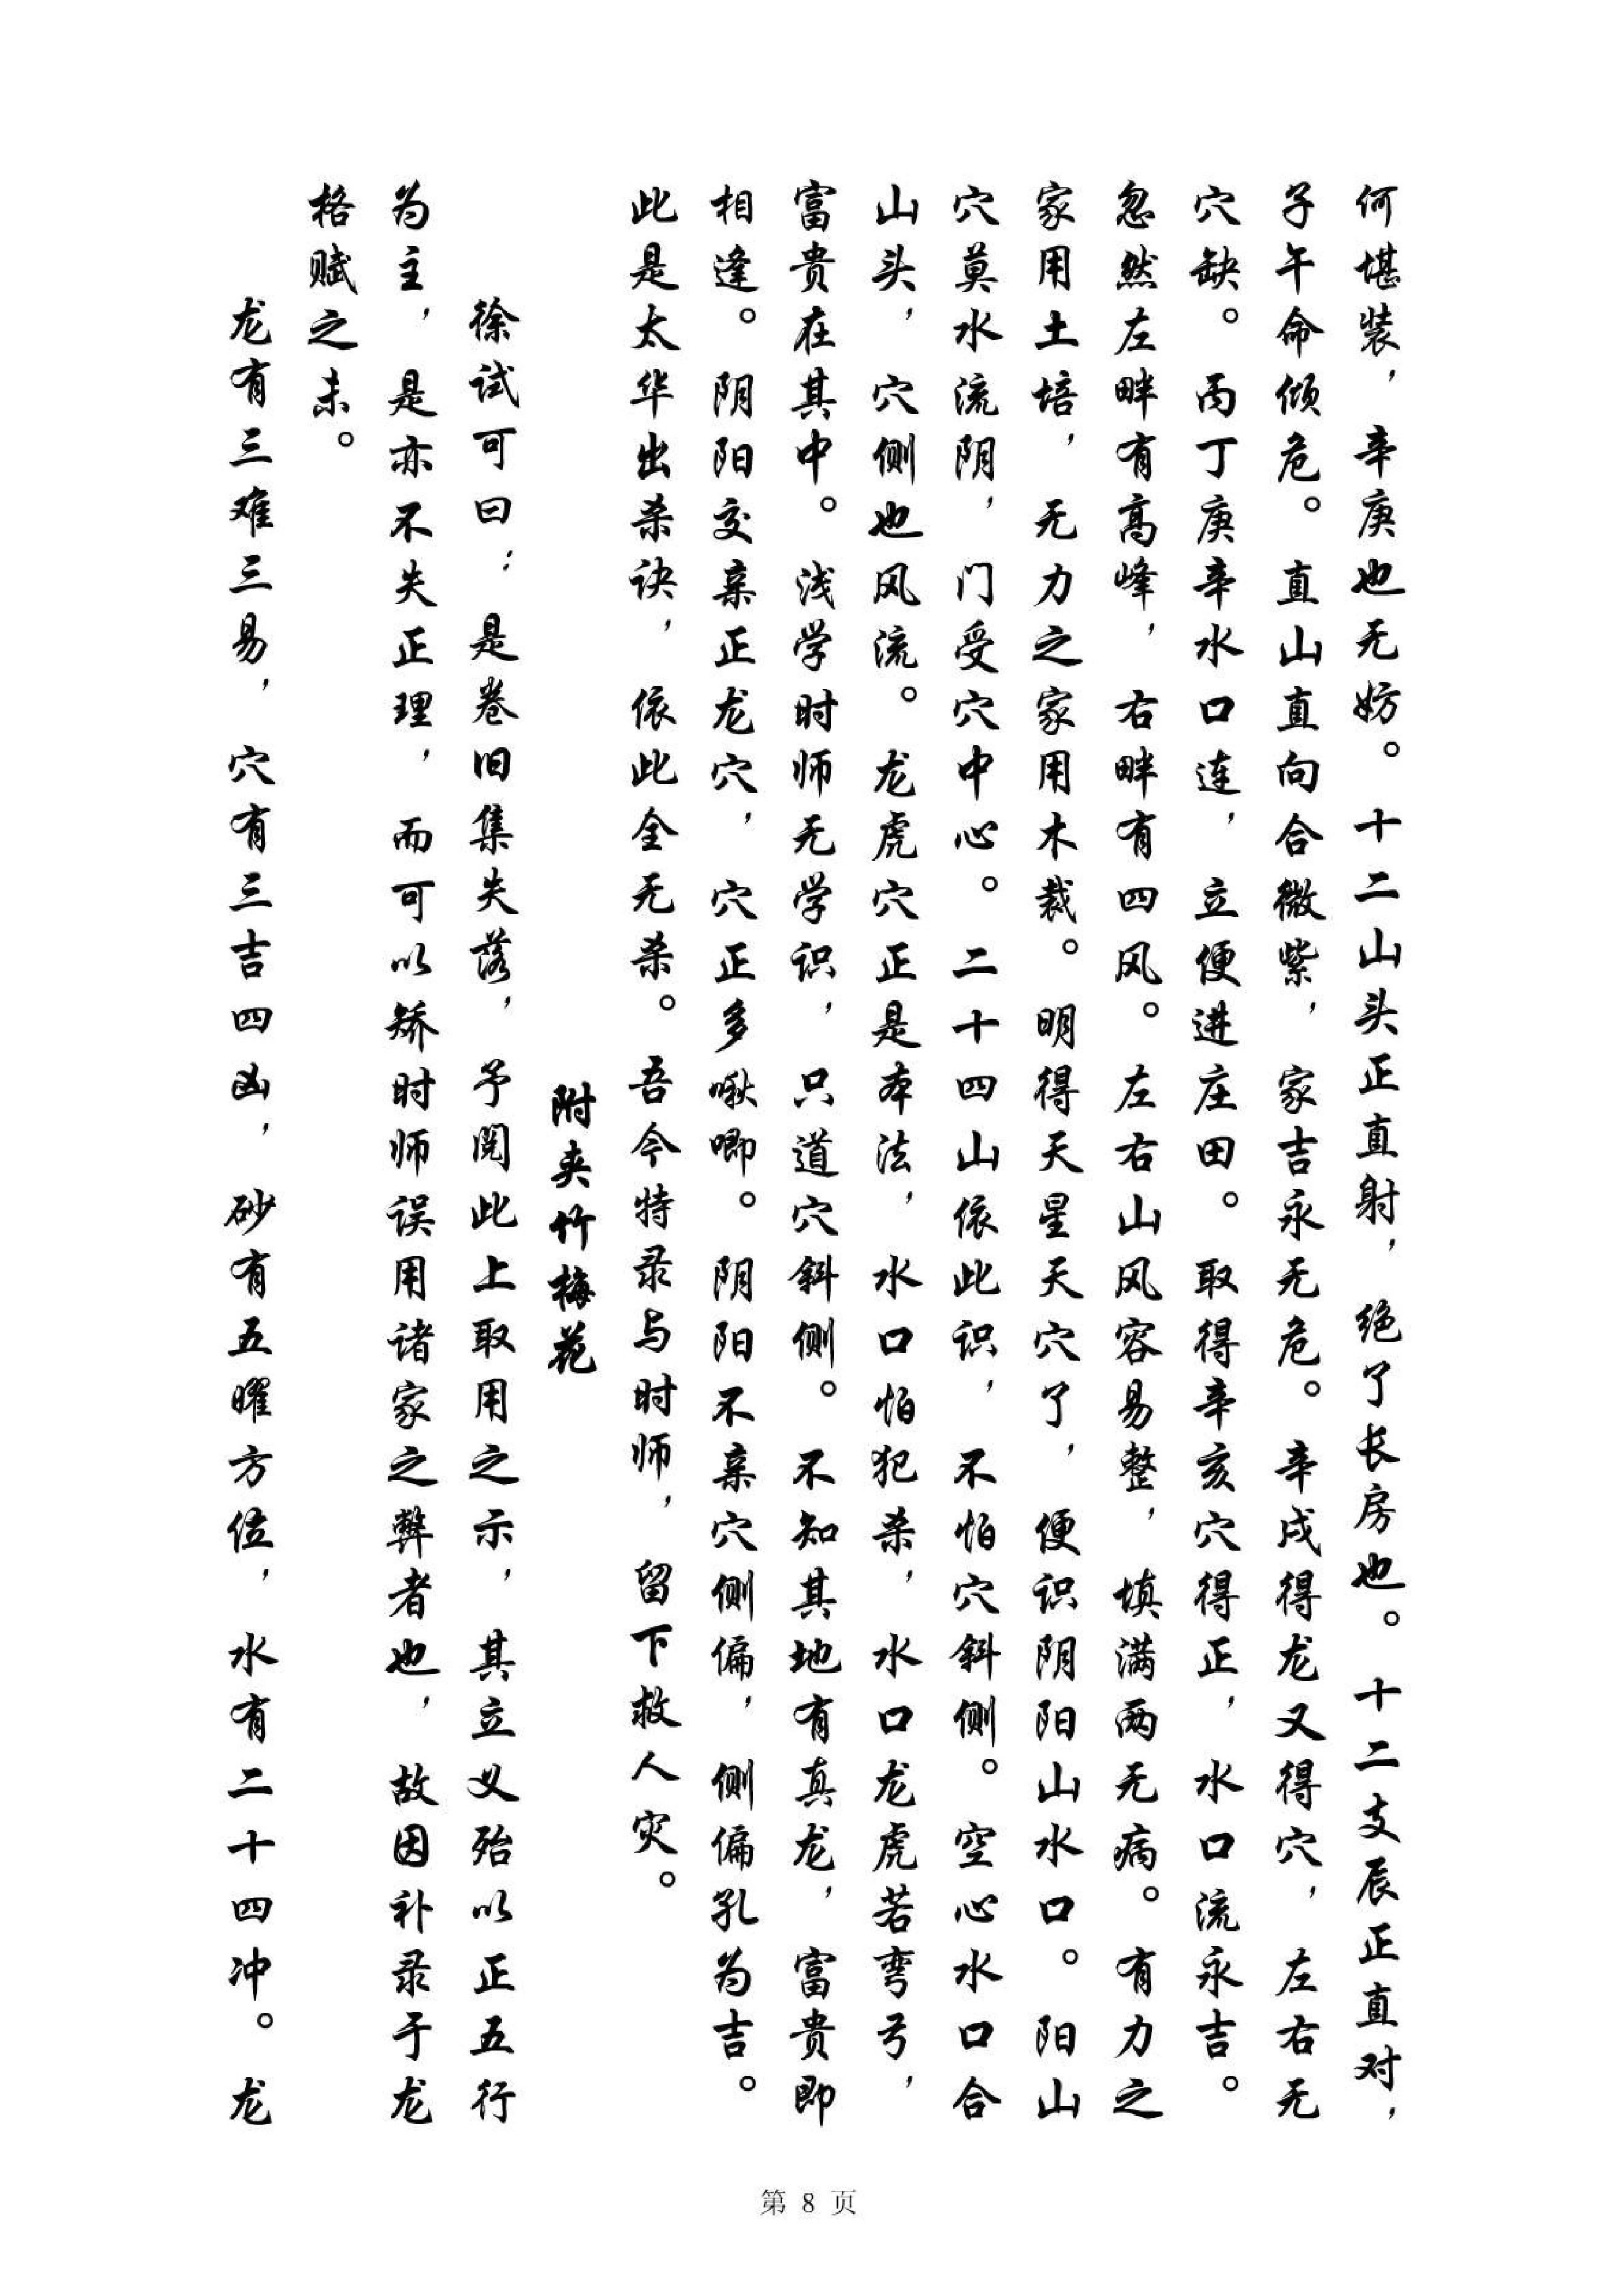 何堪装，辛庚也无妨。十二山头正直射，绝了长房也。十二支辰正直对，
子午命倾危。直山直向合微紫，家吉永无危。辛戌得龙又得穴，左右无
穴缺。丙丁庚辛水口连，立便进庄田。取得辛亥穴得正，水口流永吉。
忽然左畔有高峰，右畔有四风。左右山风容易整，填满两无病。有力之
家用土培，无力之家用木裁。明得天星天穴了，便识阴阳山水口。阳山
穴莫水流阴，门受穴中心。二十四山依此识，不怕穴斜侧。空心水口合
山头，穴侧也风流。龙虎穴正是本法，水口怕犯杀，水口龙虎若弯弓，
富贵在其中。浅学时师无学识，只道穴斜侧。不知其地有真龙，富贵即
相逢。阴阳交亲正龙穴，穴正多啾唧。阴阳不亲穴侧偏，侧偏孔为吉。
此是太华出杀诀，依此全无杀。吾今特录与时师，留下救人灾。
附夹竹梅花
徐试可曰：是卷旧集失落，予阅此上取用之示，其立义殆以正五行
为主，是亦不失正理，而可以矫时师误用诸家之弊者也，故因补录于龙
格赋之未。
龙有三难三易，穴有三吉四凶，砂有五曜方位，水有二十四冲。龙
第 8 页